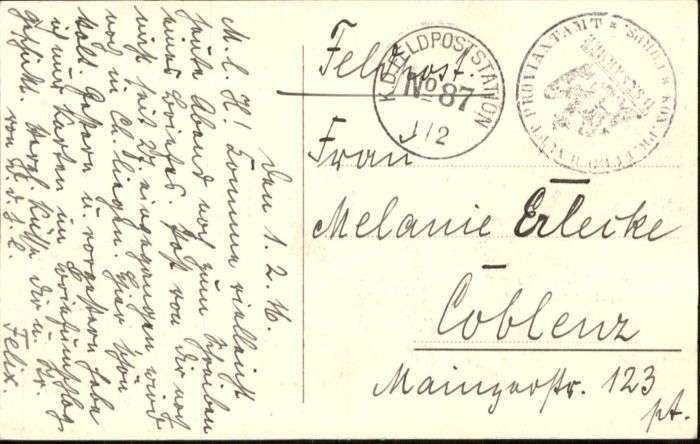 den 1. 2. 16.
M. l. H! Komme vielleicht
heute Abend noch zum Schreiben
eines Briefes. Post von Dir noch
nicht seit 27 eingegangen wird
noch in Ch. liegen. Hier schön
kalt. Gestern u. vorgestern habe
ich nur Karten im
geschickt. Herzl. Küsse Dir u.
von D. d. l.
Felix.
Feldpost.
K.D. FELDPOSTSTATION
No 87
1/2
PROVIANTAMT
Frau
Melanie Erlecke
Coblenz
Mainzerstr. 123
pt.